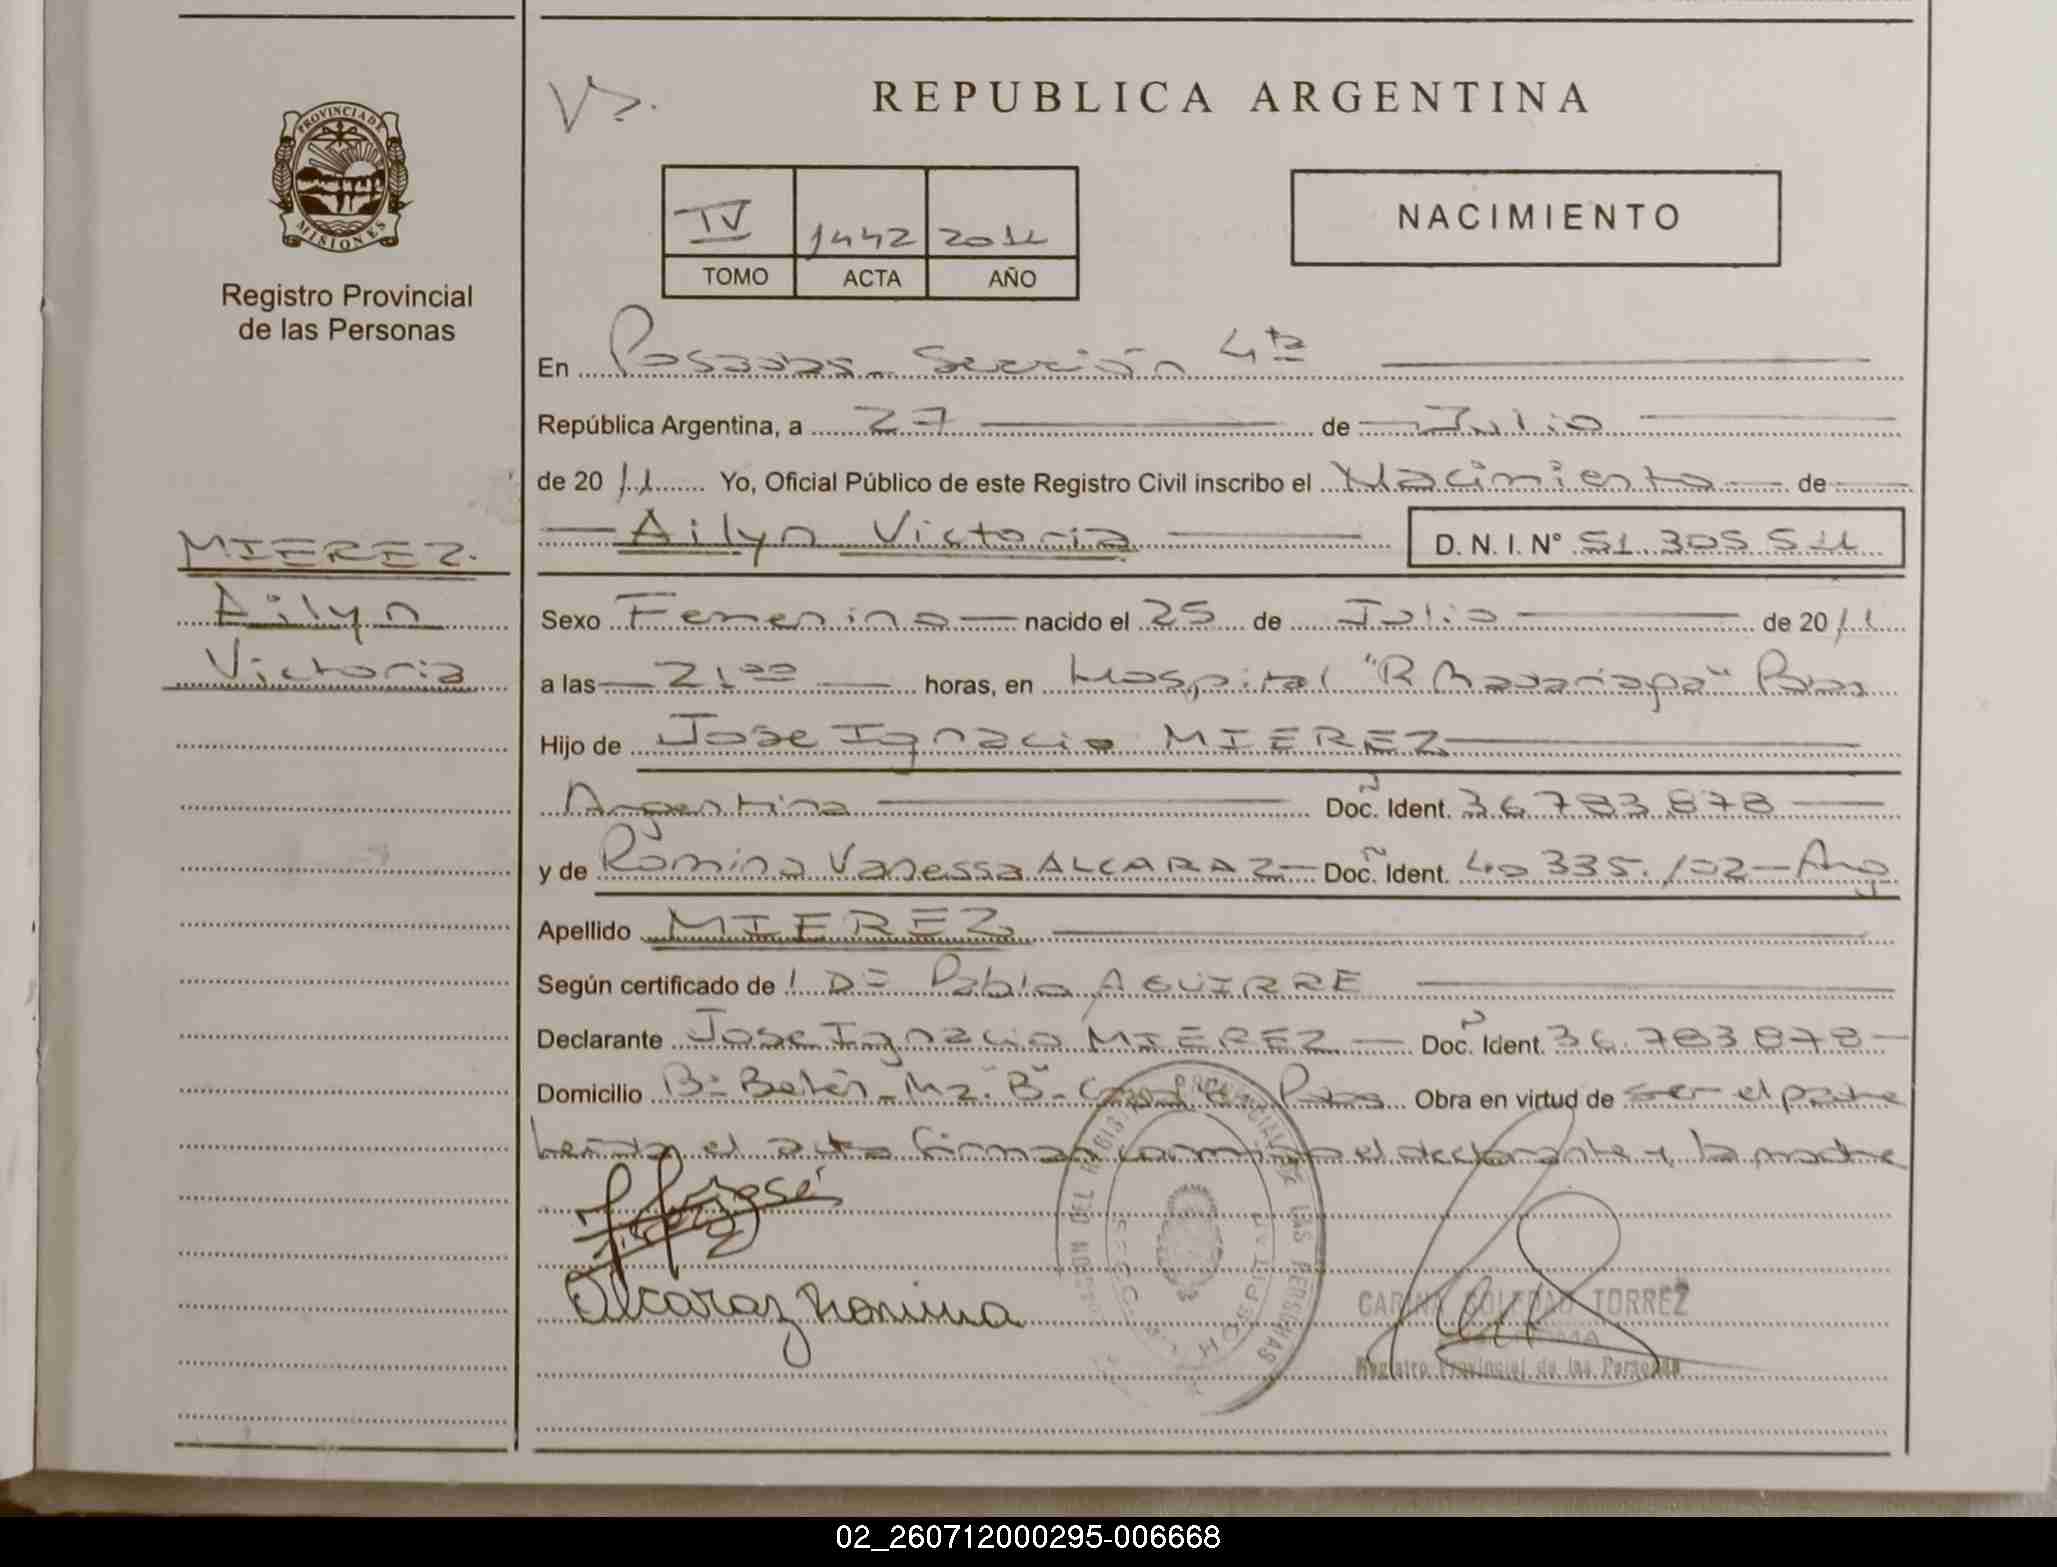 REPUBLICA ARGENTINA
PROVINCIA DE
MISIONES
Registro Provincial
de las Personas
IV 1442 2011
TOMO ACTA AÑO
NACIMIENTO
En Posadas - Sección 4ta
República Argentina, a 27 de Julio
de 20 11 Yo, Oficial Público de este Registro Civil inscribo el Nacimiento de
Ailyn Victoria D. N. I. N° 51.305.511
MIEREZ.
Ailyn
Victoria
Sexo Femenino nacido el 25 de Julio de 20 11
a las 21:00 horas, en Hospital "R Madariaga" Pdas
Hijo de Jose Ignacio MIEREZ
Argentina Doc. Ident. 36.783.878
y de Romina Vanessa ALCARAZ Doc. Ident. 40.335.102 - Arg
Apellido MIEREZ
Según certificado de Pablo AGUIRRE
Declarante Jose Ignacio MIEREZ Doc. Ident. 36.783.878
Domicilio B° Belén - Mz. "B" - Pdas Obra en virtud de ser el padre
el acta firman conmigo el declarante y la madre
José
Alcaraz Romina
CARINA SOLEDAD TORREZ
Registro Provincial de las Personas
02_260712000295-006668